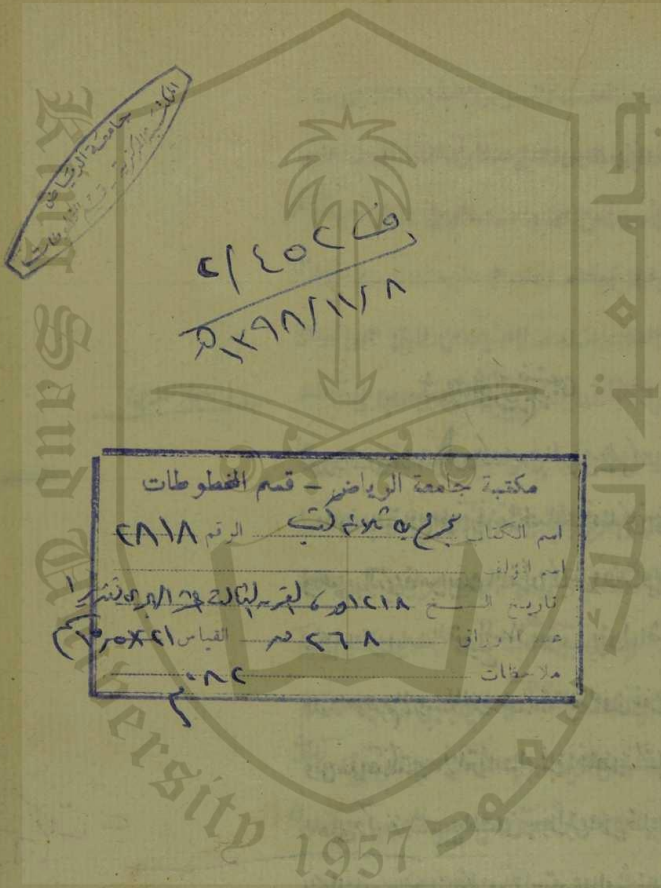 جامعة الرياض
المكتبة المركزية - قسم المخطوطات
ف ٤٥٢ / ٢
١٣٩٨/١١/٨ هـ
مكتبة جامعة الرياض - قسم المخطوطات
اسم الكتاب مجموع به ثلاثة كتب الرقم ٢٨١٨
اسم المؤلف
تاريخ النسخ ١٢١٨ هـ و القرن الثالث عشر الهجري تقديرا
عدد الأوراق ٢٦٨ ق القياس ٢١×
ملاحظات ٠٨٢
King Saud University
1957
جامعة الملك سعود